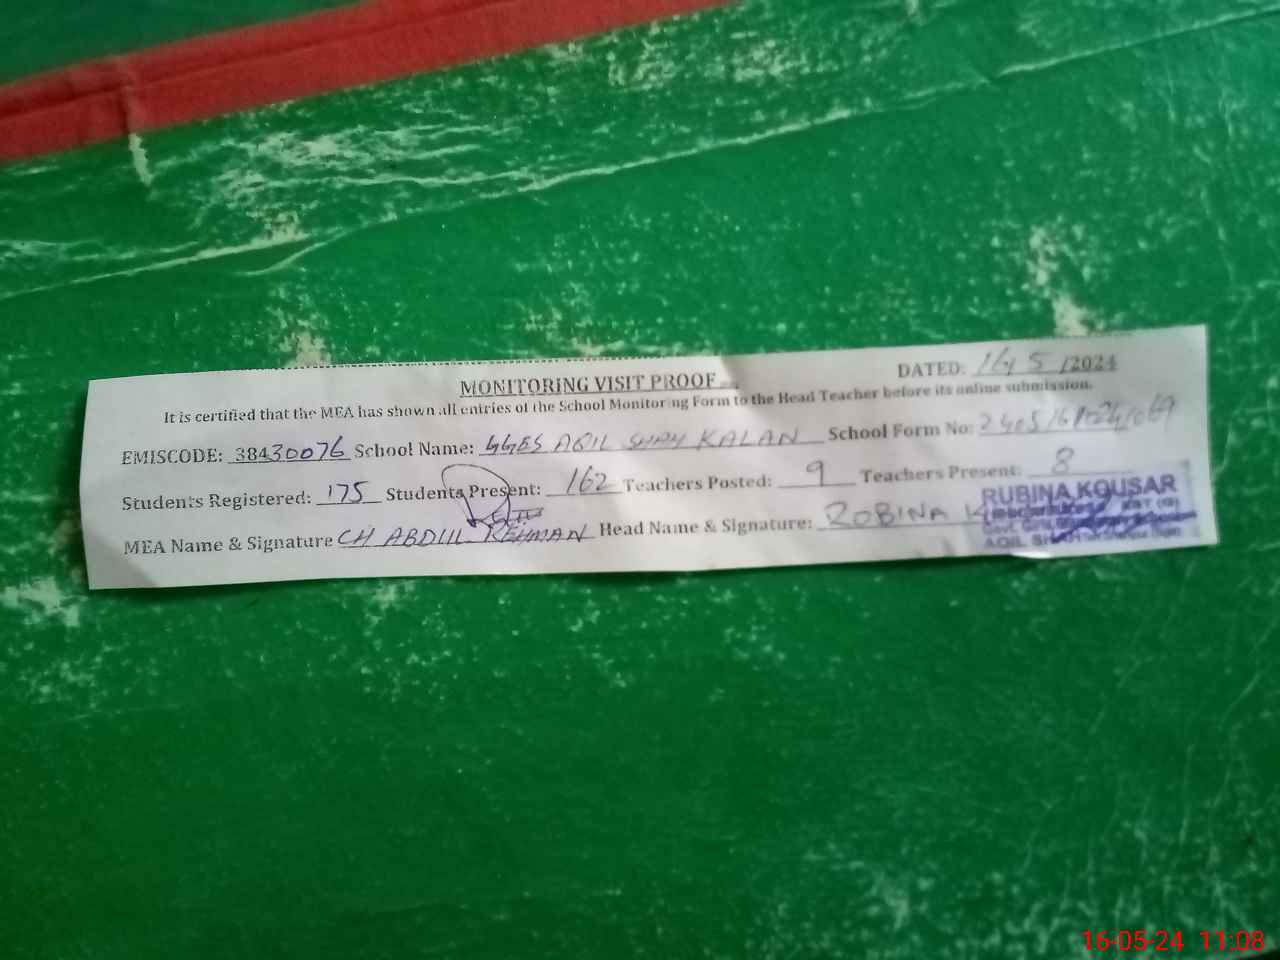 DATED: 16/5/2024
MONITORING VISIT PROOF
It is certified that the MEA has shown all entries of the School Monitoring Form to the Head Teacher before its online submission.
EMISCODE: 38430076 School Name: GGES AQIL SHAH KALAN School Form No:
Students Registered: 175 Students Present: 162 Teachers Posted: 9 Teachers Present: 8
MEA Name & Signature CH ABDUL REHMAN Head Name & Signature: ROBINA K
RUBINA KOUSAR
AQIL SHAH
16-05-24 11:08